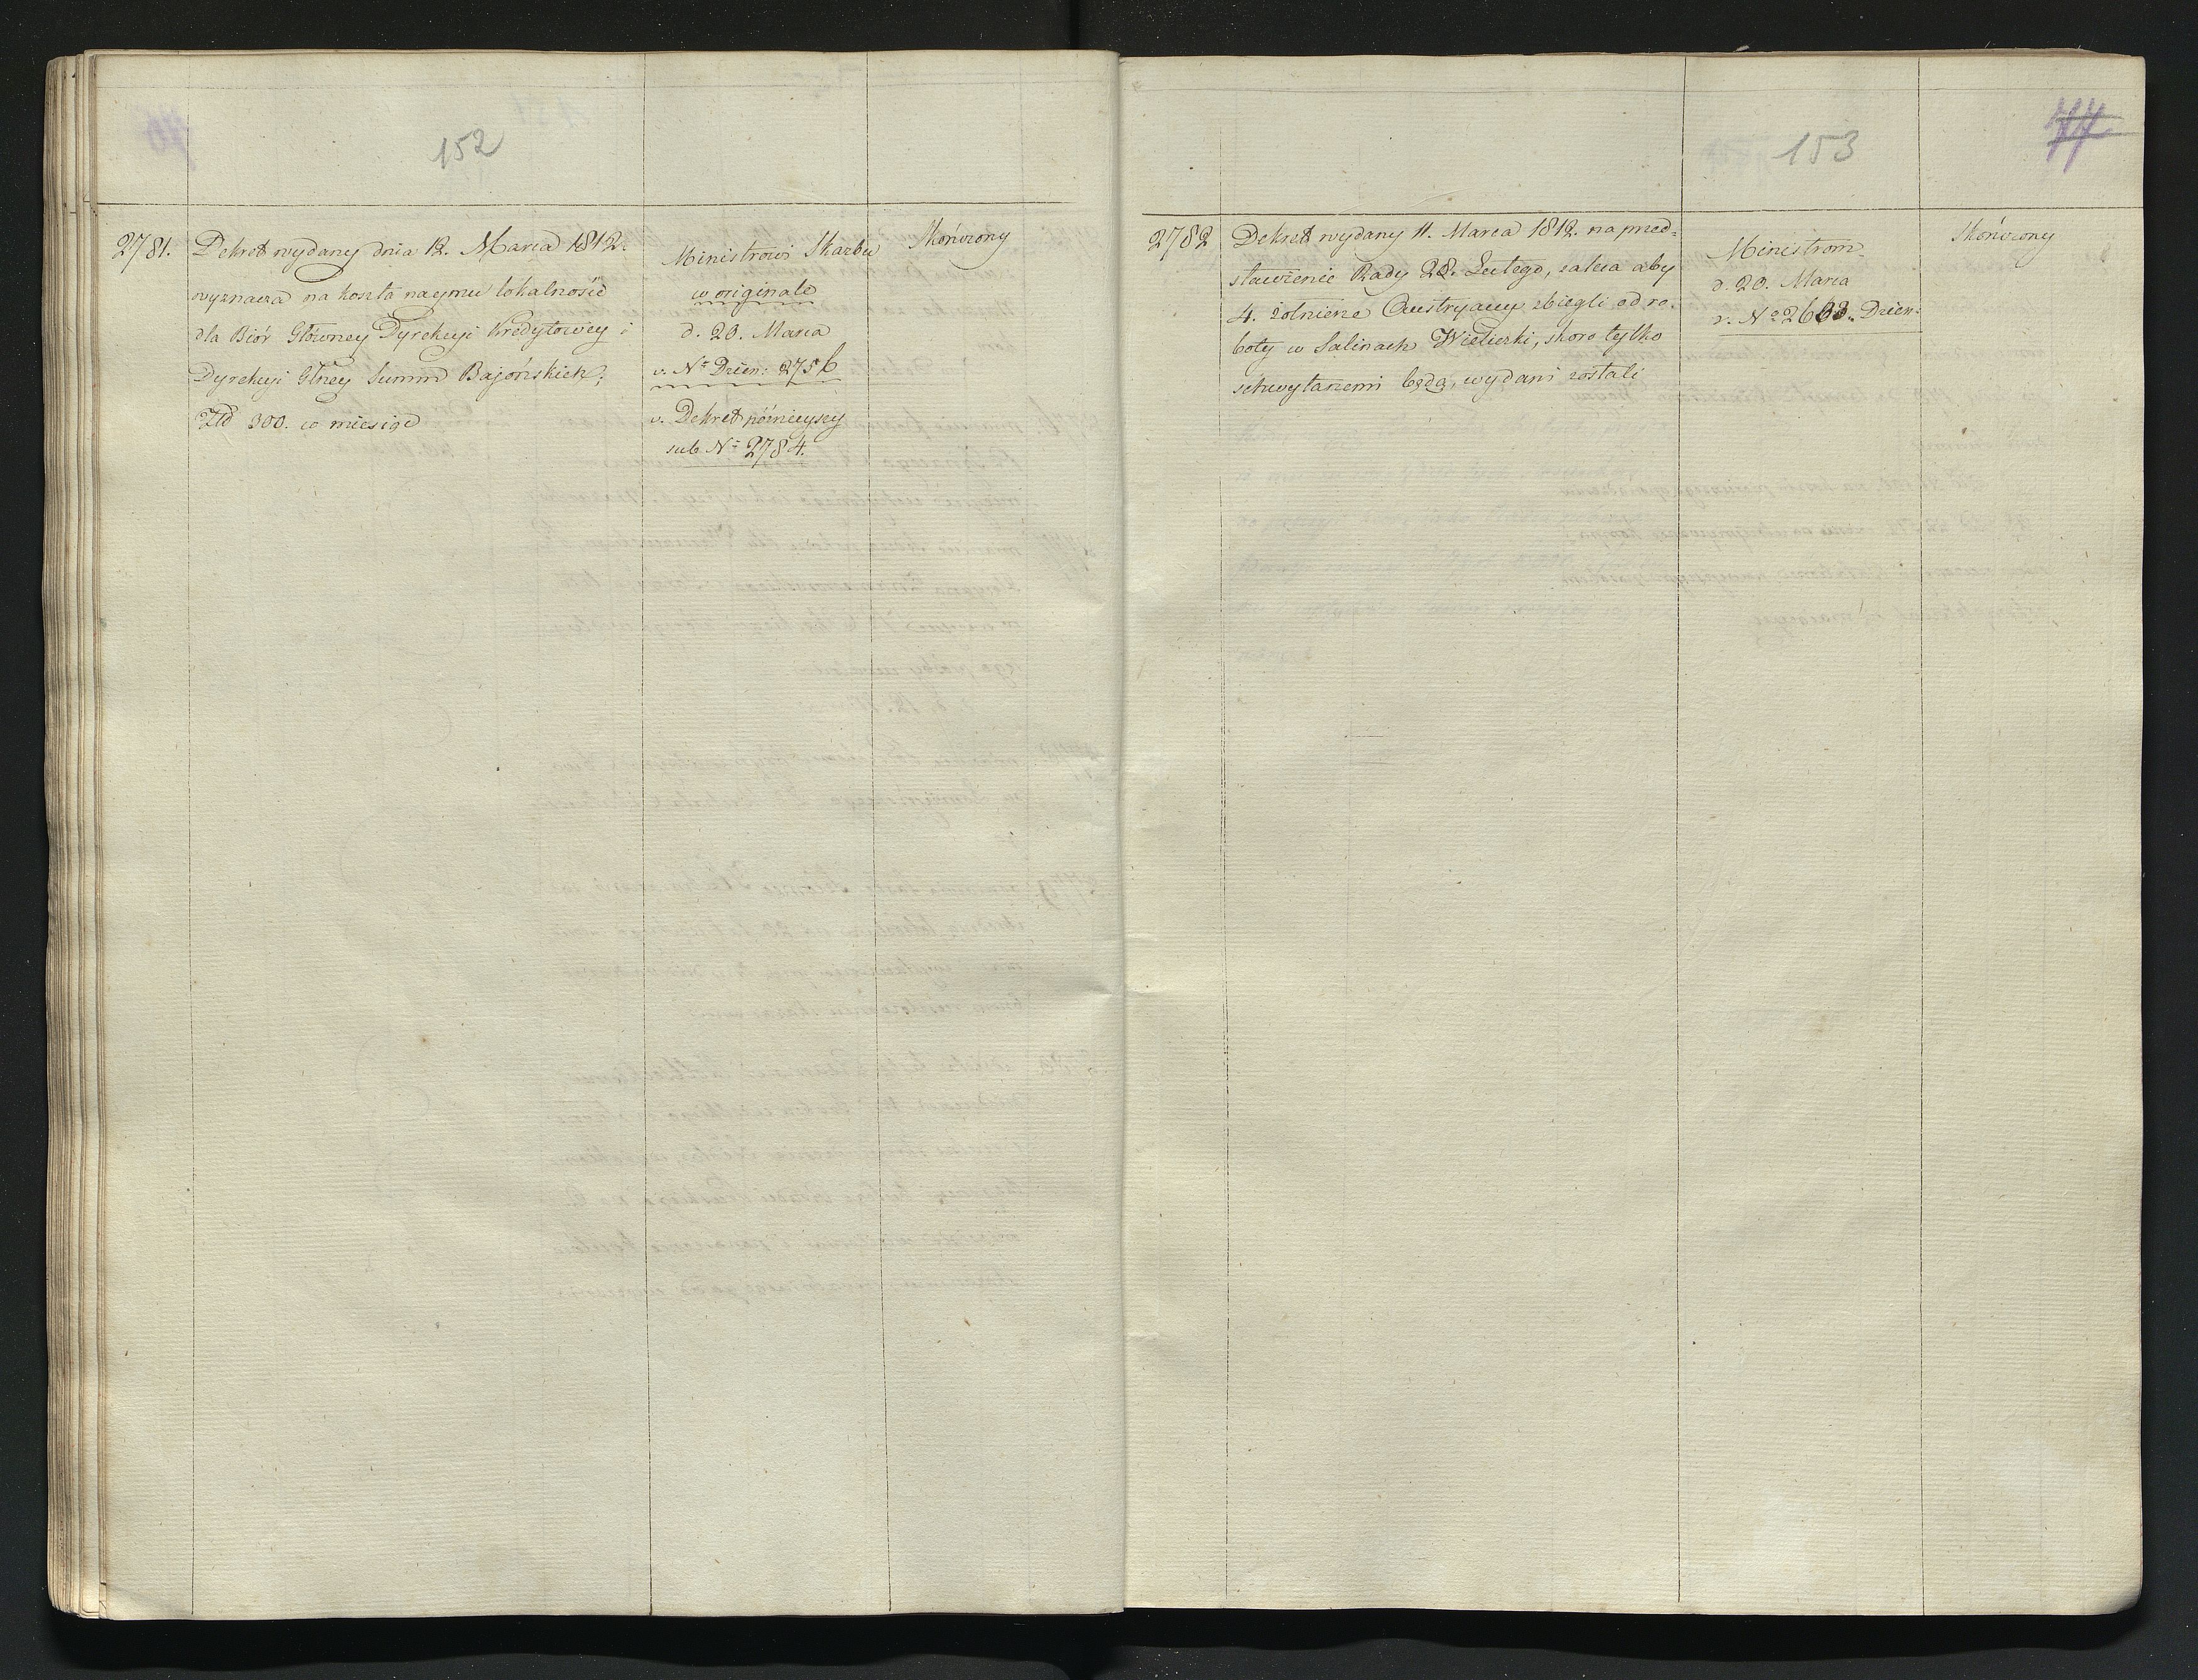 152
2781.
Dekret wydany dnia 12. Marca 1812.
wyznacza na koszta naymu lokalnosie
dla Biór Główney Dyrekcyi Kredytowey i
Dyrekcyi Głney Summ Bajońskich;
Złł 300. w miesiąc
Ministrowi Skarbu
w originale
d. 20. Marca
v. Nr Dzien: 2756
v. Dekret późnieyszy
sub Nr 2784.
Skończony
153
77
2782
Dekret wydany 11. Marca 1812. na przed-
stawienie Rady 28. Lutego, zaleca aby
4. żołnierze Austryaccy zbiegli od ro-
boty w Salinach Wieliczki, skoro tylko
schwytanemi będą, wydani zostali
Ministrom
d. 20. Marca
v. Nr Dzien.
Skończony